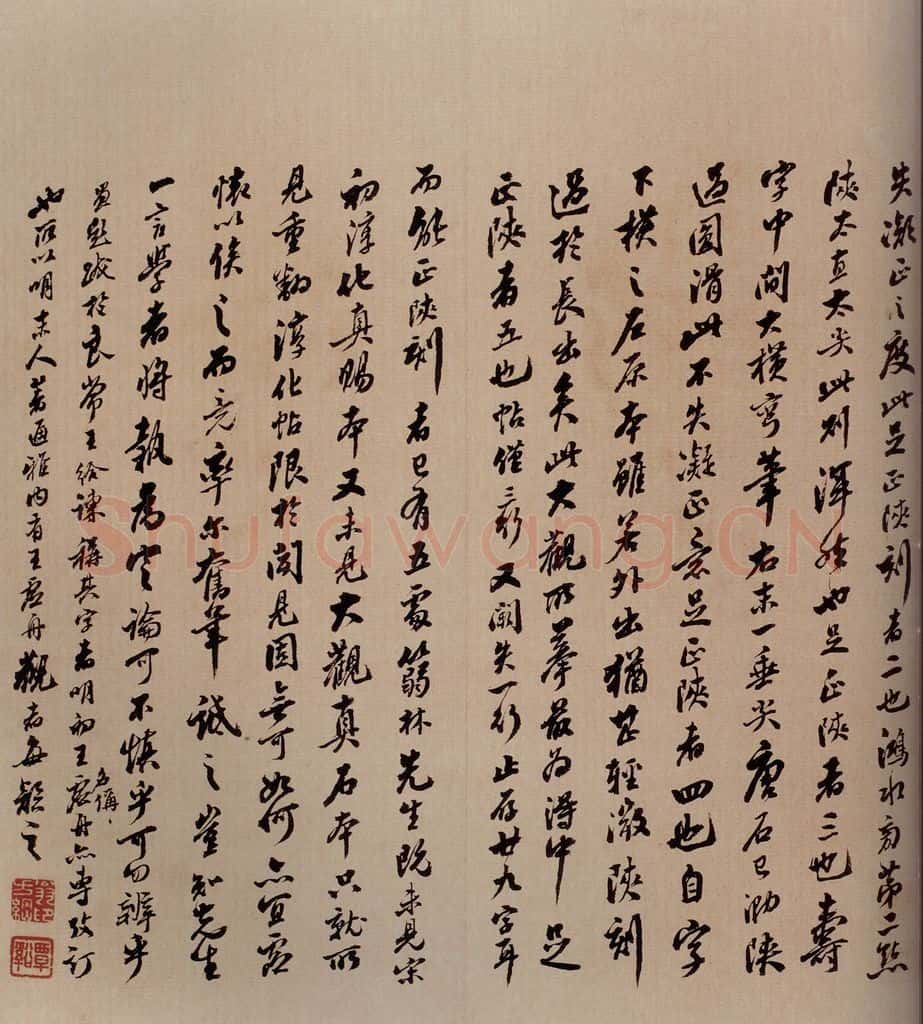 失凝正之度此足正陝刻者二也鴻水旁第二點
陝太直太尖此則渾然也足正陝者三也壽
字中間大橫穹筆右末一垂尖唐石已泐陝
過圓滑此不失凝正之意足正陝者四也自字
下橫之右原本雖若外出猶甚輕澂陝刻
過於長出矣此大觀所摹最為得中足
正陝者五也帖僅三行又闕失一行止存廿九字耳
而能正陝刻者已有五處篛林先生既未見宋
初淳化真賜本又未見大觀真石本只就所
見重翻淳化帖限於聞見固無可如何亦宜虛
懷以俟之而竟率尔奮筆詆之豈知先生
一言學者將執為定論可不慎乎可勿辨乎
跋於良常王給諫稱其字者明初王虛舟亦專攷訂
名偁
也所以明末人著通雅內有王虛舟觀者每疑之
翁印方綱
覃谿
Shufawang.CN